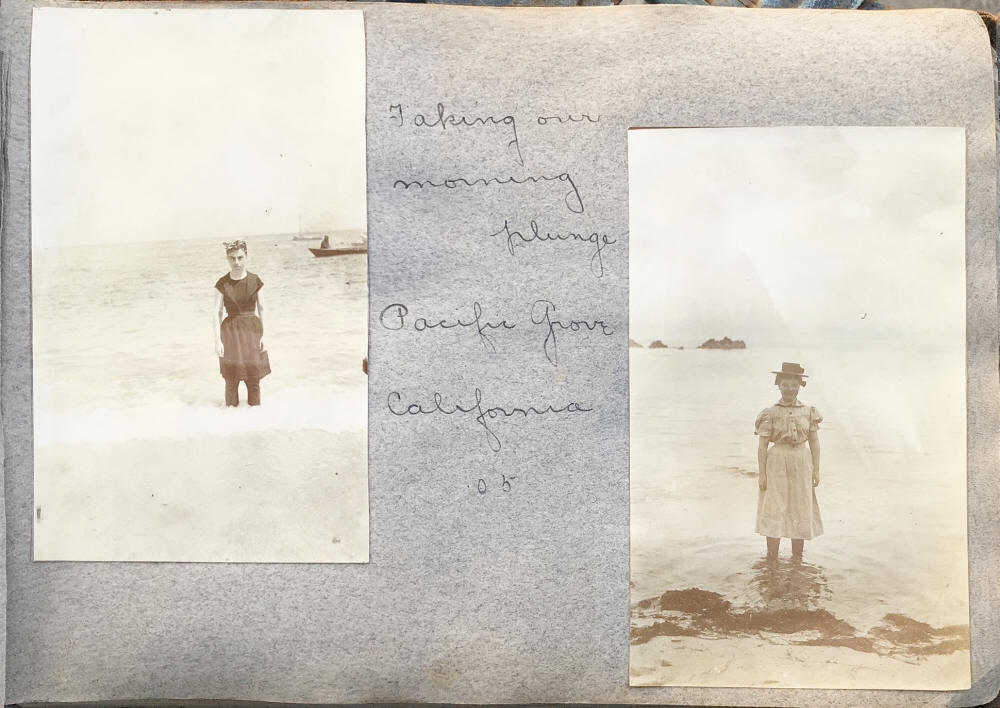 Taking our
morning
plunge
Pacific Grove
California
05